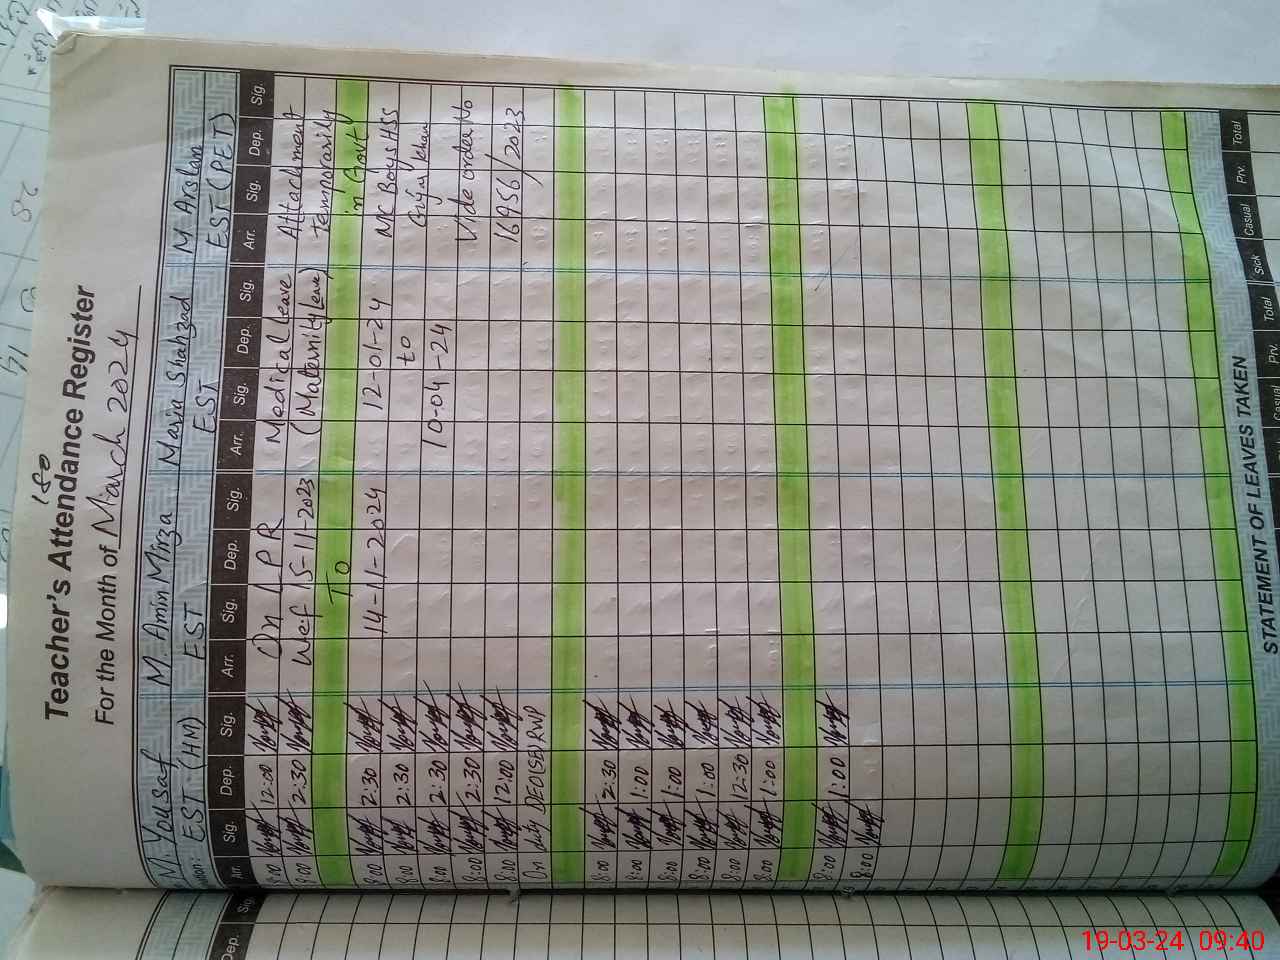 180
Teacher's Attendance Register
For the Month of March 2024
M. Yousaf M. Amin Mirza Maria Shahzad M. Arslan
EST (HM) EST EST EST (PET)
Arr. Sig. Dep. Sig. Arr. Sig. Dep. Sig. Arr. Sig. Dep. Sig. Arr. Sig. Dep. Sig.
8:00 12:00 On L P R Medical Leave Attachment
8:00 2:30 Wef 15-11-2023 (Maternity Leave) Temporarily
To in Govt
8:00 2:30 14-11-2024 12-01-24 MC Boys HSS
8:00 2:30 to Gujar khan
8:00 2:30 10-04-24
8:00 2:30 Vide order No
8:00 12:00 16956/2023
On duty DEO(SE) RWP
8:00 2:30
8:00 1:00
8:00 1:00
8:00 1:00
8:00 12:30
8:00 1:00
8:00 1:00
8:00
STATEMENT OF LEAVES TAKEN
Casual Prv. Total Sick Casual Prv. Total
Dep. Sig.
19-03-24 09:40